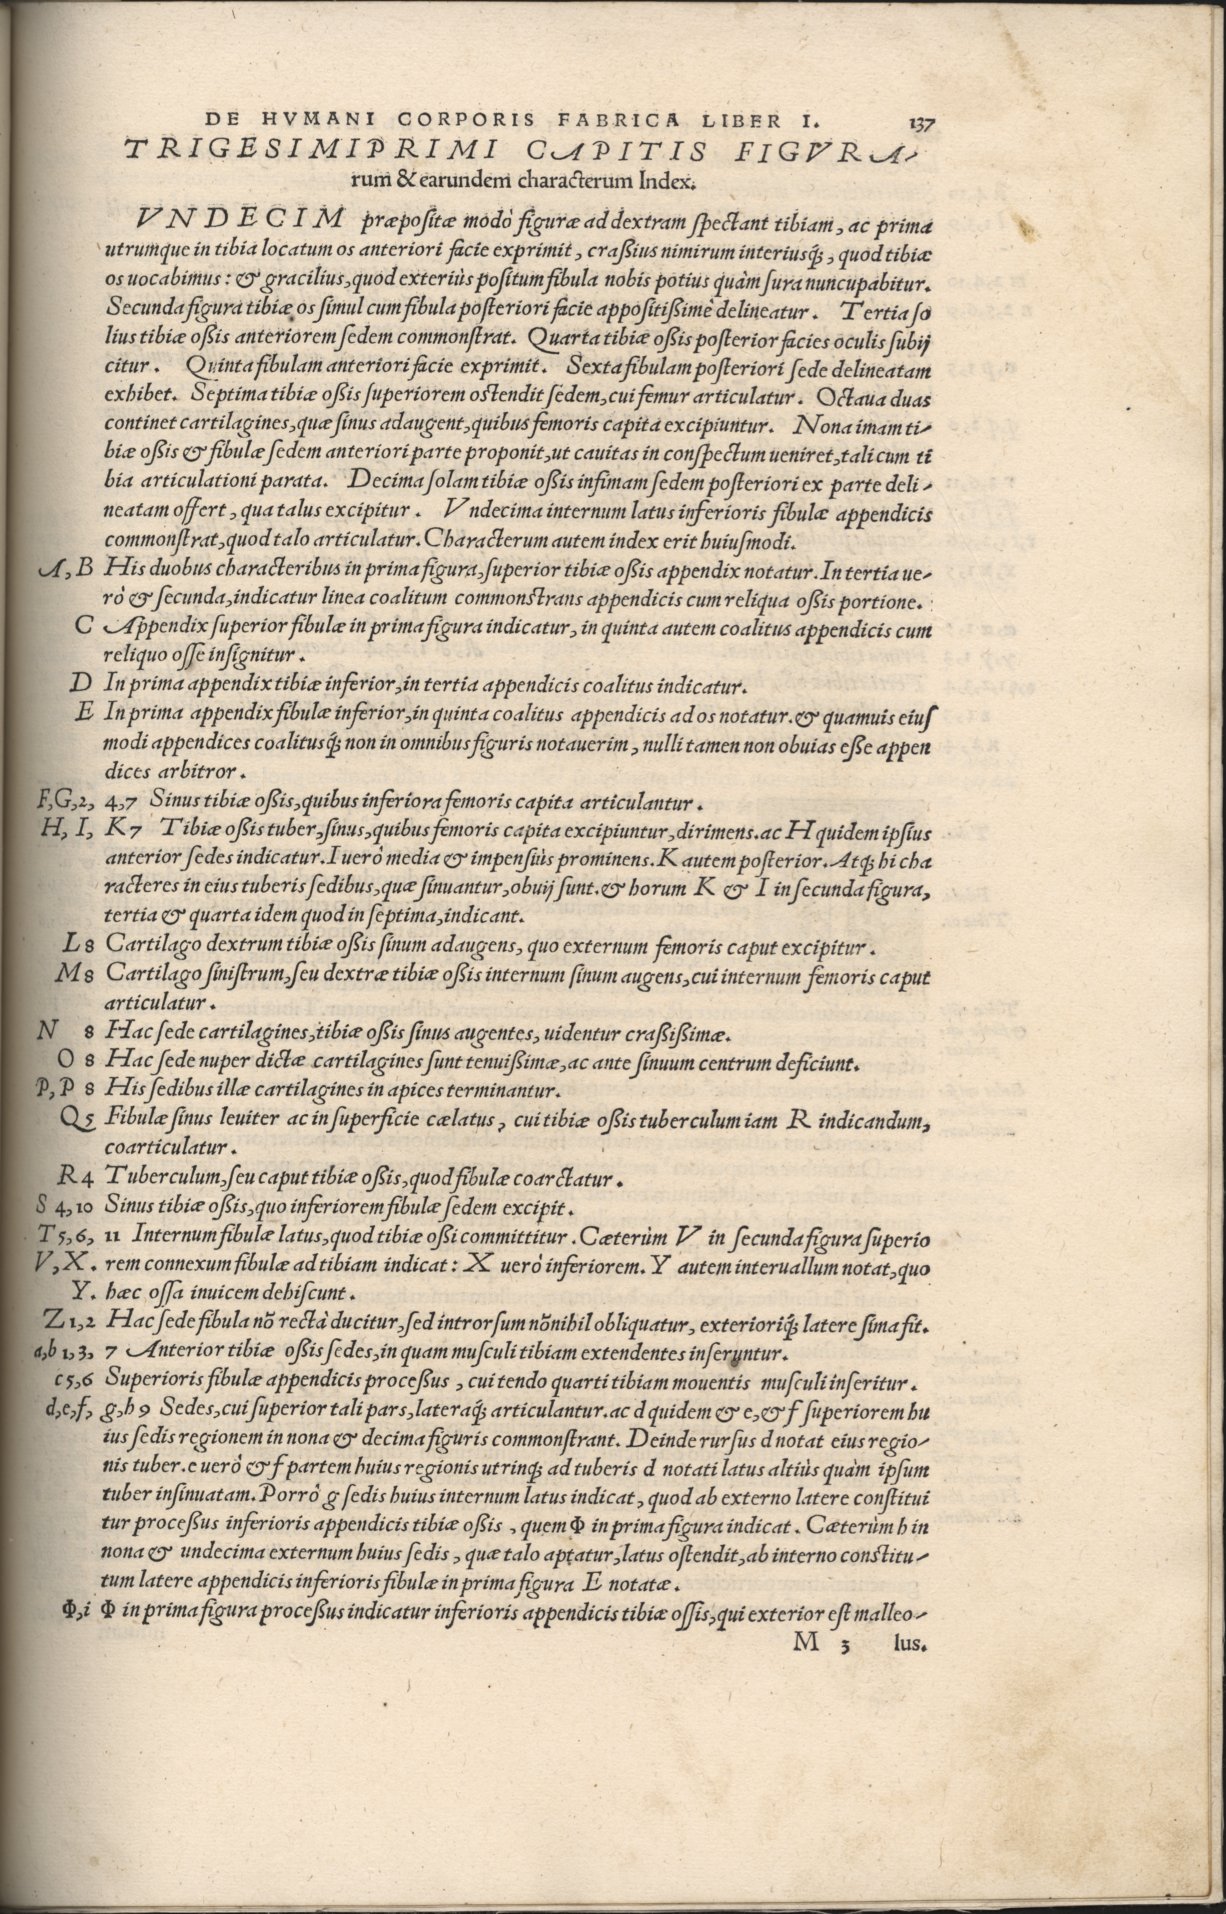 DE HVMANI CORPORIS FABRICA LIBER I. 137
TRIGESIMIPRIMI CAPITIS FIGVRA-
rum & earundem characterum Index.
VNDECIM præpositæ modò figuræ ad dextram spectant tibiam, ac prima
utrumque in tibia locatum os anteriori facie exprimit, craßius nimirum interiusq́;, quod tibiæ
os uocabimus: & gracilius, quod exteriùs positum fibula nobis potius quàm sura nuncupabitur.
Secunda figura tibiæ os simul cum fibula posteriori facie appositißimè delineatur. Tertia so
lius tibiæ oßis anteriorem sedem commonstrat. Quarta tibiæ oßis posterior facies oculis subij
citur. Quinta fibulam anteriori facie exprimit. Sexta fibulam posteriori sede delineatam
exhibet. Septima tibiæ oßis superiorem ostendit sedem, cui femur articulatur. Octaua duas
continet cartilagines, quæ sinus adaugent, quibus femoris capita excipiuntur. Nona imam ti-
biæ oßis & fibulæ sedem anteriori parte proponit, ut cauitas in conspectum ueniret, tali cum ti
bia articulationi parata. Decima solam tibiæ oßis infimam sedem posteriori ex parte deli-
neatam offert, qua talus excipitur. Vndecima internum latus inferioris fibulæ appendicis
commonstrat, quod talo articulatur. Characterum autem index erit huiusmodi.
A, B His duobus characteribus in prima figura, superior tibiæ oßis appendix notatur. In tertia ue-
rò & secunda, indicatur linea coalitum commonstrans appendicis cum reliqua oßis portione.
C Appendix superior fibulæ in prima figura indicatur, in quinta autem coalitus appendicis cum
reliquo osse insignitur.
D In prima appendix tibiæ inferior, in tertia appendicis coalitus indicatur.
E In prima appendix fibulæ inferior, in quinta coalitus appendicis ad os notatur. & quamuis eius
modi appendices coalitusq́; non in omnibus figuris notauerim, nulli tamen non obuias eße appen
dices arbitror.
F, G, 2, 4, 7 Sinus tibiæ oßis, quibus inferiora femoris capita articulantur.
H, I, K 7 Tibiæ oßis tuber, sinus, quibus femoris capita excipiuntur, dirimens. ac H quidem ipsius
anterior sedes indicatur. I uerò media & impensiùs prominens. K autem posterior. Atq; hi cha
racteres in eius tuberis sedibus, quæ sinuantur, obuij sunt. & horum K & I in secunda figura,
tertia & quarta idem quod in septima, indicant.
L 8 Cartilago dextrum tibiæ oßis sinum adaugens, quo externum femoris caput excipitur.
M 8 Cartilago sinistrum, seu dextræ tibiæ oßis internum sinum augens, cui internum femoris caput
articulatur.
N 8 Hac sede cartilagines, tibiæ oßis sinus augentes, uidentur craßißimæ.
O 8 Hac sede nuper dictæ cartilagines sunt tenuißimæ, ac ante sinuum centrum deficiunt.
P, P 8 His sedibus illæ cartilagines in apices terminantur.
Q 5 Fibulæ sinus leuiter ac in superficie cælatus, cui tibiæ oßis tuberculum iam R indicandum,
coarticulatur.
R 4 Tuberculum, seu caput tibiæ oßis, quod fibulæ coarctatur.
S 4, 10 Sinus tibiæ oßis, quo inferiorem fibulæ sedem excipit.
T 5, 6, 11 Internum fibulæ latus, quod tibiæ oßi committitur. Cæterùm V in secunda figura superio
V, X. rem connexum fibulæ ad tibiam indicat: X uerò inferiorem. Y autem interuallum notat, quo
Y. hæc ossa inuicem dehiscunt.
Z 1, 2 Hac sede fibula nõ rectà ducitur, sed introrsum nõnihil obliquatur, exterioriq́; latere sima fit.
a, b 1, 3, 7 Anterior tibiæ oßis sedes, in quam musculi tibiam extendentes inseruntur.
c 5, 6 Superioris fibulæ appendicis proceßus, cui tendo quarti tibiam mouentis musculi inseritur.
d, e, f, g, h 9 Sedes, cui superior tali pars, lateraq́; articulantur. ac d quidem & e, & f superiorem hu
ius sedis regionem in nona & decima figuris commonstrant. Deinde rursus d notat eius regio-
nis tuber. e uerò & f partem huius regionis utrinq; ad tuberis d notati latus altiùs quàm ipsum
tuber insinuatam. Porrò g sedis huius internum latus indicat, quod ab externo latere constitui
tur proceßus inferioris appendicis tibiæ oßis, quem Φ in prima figura indicat. Cæterùm h in
nona & undecima externum huius sedis, quæ talo aptatur, latus ostendit, ab interno constitu-
tum latere appendicis inferioris fibulæ in prima figura E notatæ.
Φ, i Φ in prima figura proceßus indicatur inferioris appendicis tibiæ ossis, qui exterior est malleo-
M 3 lus.